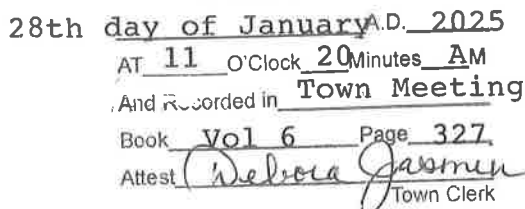 28th day of January A.D. 2025
AT 11 O'Clock 20 Minutes AM
And Recorded in Town Meeting
Book Vol 6 Page 327
Attest Debora Jasmin
Town Clerk